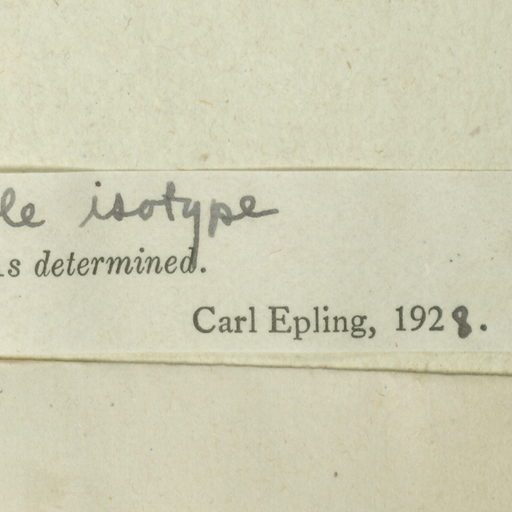 le isotype
is determined.
Carl Epling, 1928.